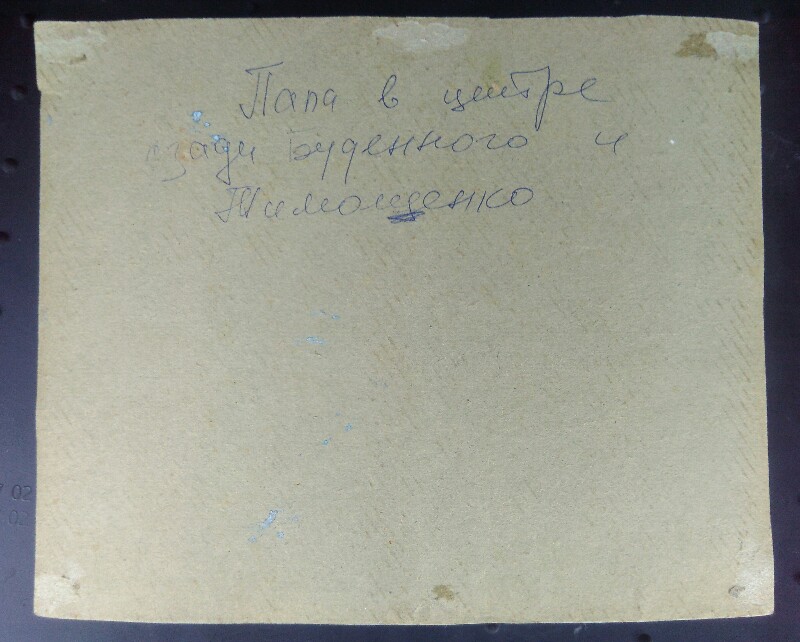 Папа в центре
сзади Буденного и
Тимошенко
02
02